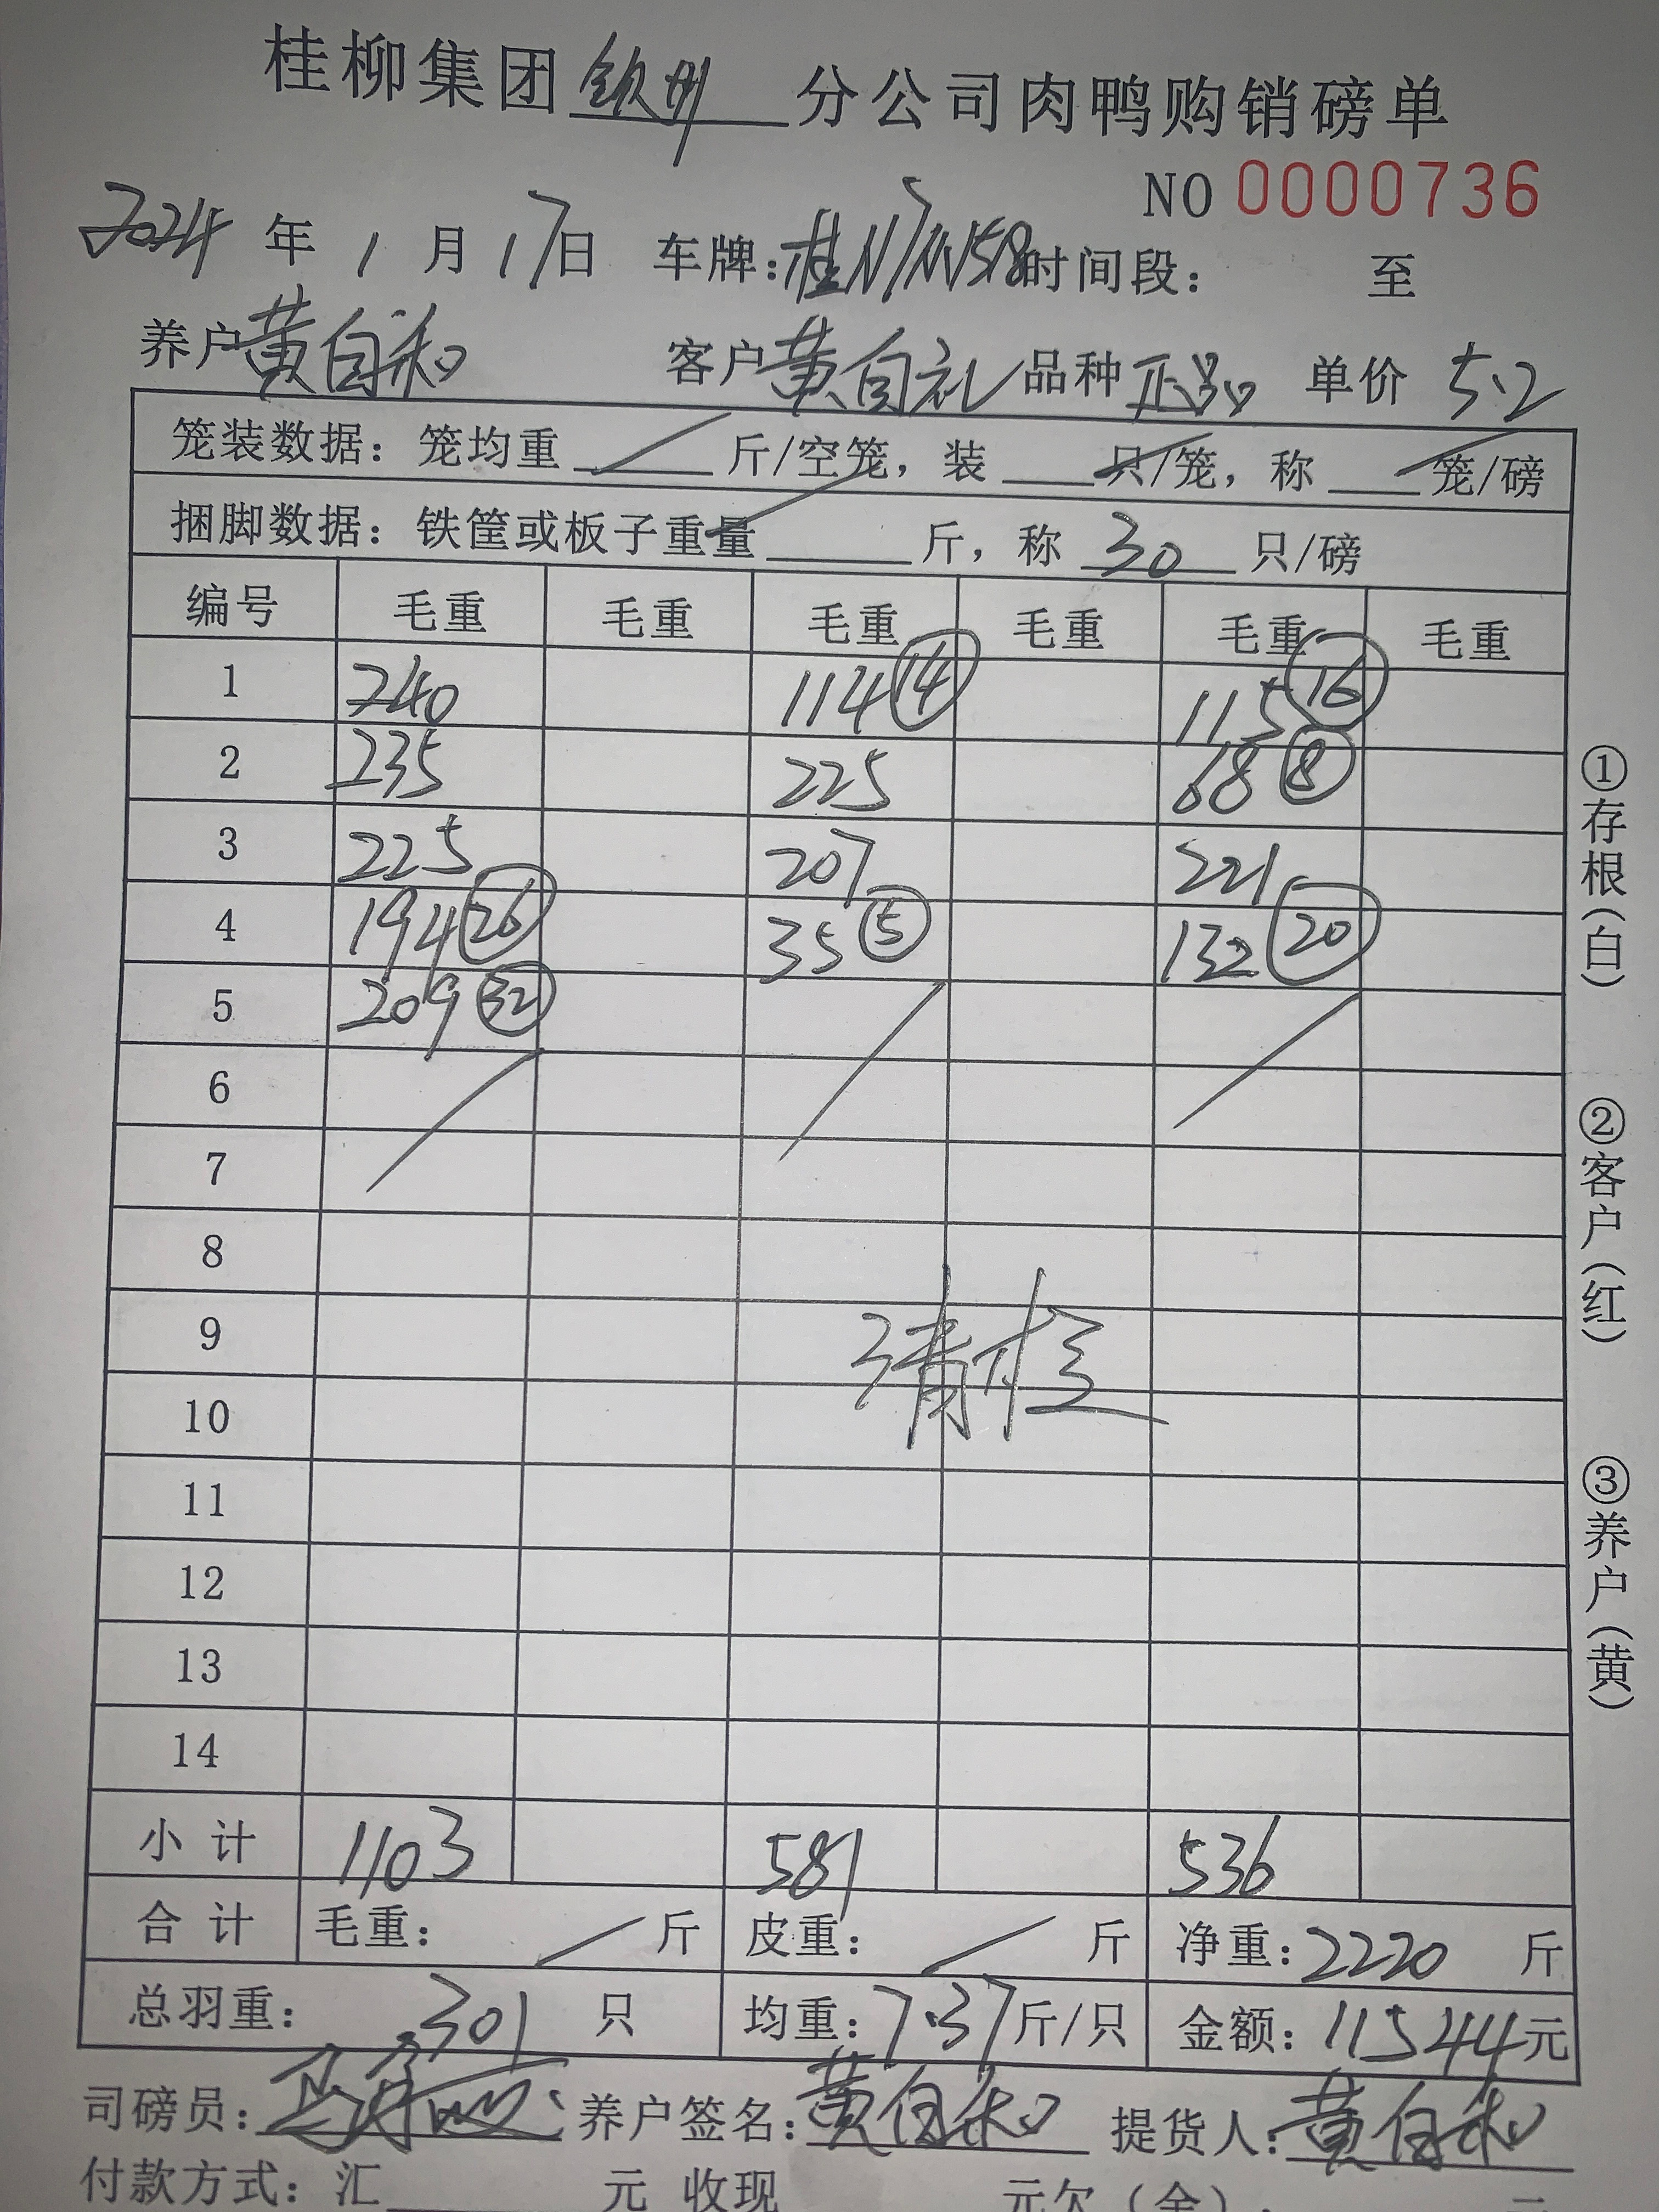 桂柳集团 钦州 分公司肉鸭购销磅单
NO 0000736
2024 年 1 月 17 日 车牌: 时间段: 至
养户 黄自和 客户 黄自礼 品种 正品 单价 5.2
笼装数据: 笼均重 / 斤/空笼, 装 / 只/笼, 称 / 笼/磅
捆脚数据: 铁筐或板子重量 / 斤, 称 30 只/磅
编号 毛重 毛重 毛重 毛重 毛重 毛重
1 240 114 ⑭ 115 ⑯
2 235 225 68 ⑧
3 225 207 221
4 194 ㉖ 35 ⑤ 132 ⑳
5 209 ㉜
6
7
8
9
10
11
12
13
14
小计 1103 581 536
合计 毛重: / 斤 皮重: / 斤 净重: 2220 斤
总羽重: 301 只 均重: 7.37 斤/只 金额: 11544 元
司磅员: 养户签名: 黄自和 提货人: 黄自和
付款方式: 汇 元 收现 元欠(余). 元
①存根(白)
②客户(红)
③养户(黄)